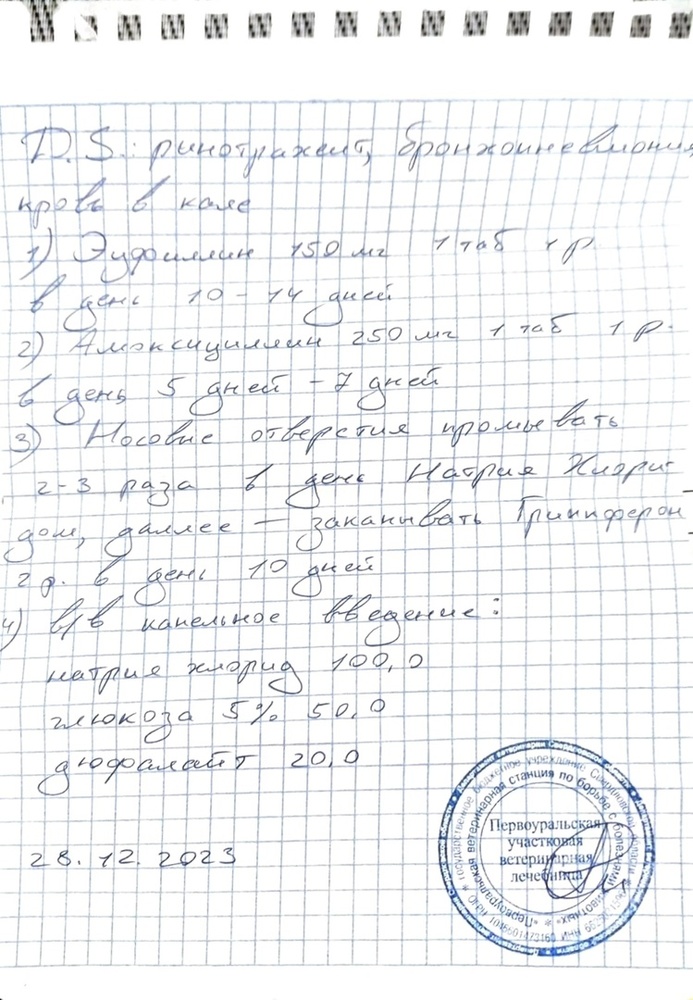 D.S.: ринотрахеит, бронхопневмония,
кровь в кале
1) Эуфиллин 150 мг 1 таб 1 р
в день 10 - 14 дней
2) Амоксициллин 250 мг 1 таб 1 р.
в день 5 дней - 7 дней
3) Носовые отверстия промывать
2-3 раза в день Натрия Хлори-
дом, даллее — закапывать Гриппферон
2 р. в день 10 дней
4) в/в капельное введение:
натрия хлорид 100,0
глюкоза 5% 50,0
дюфалайт 20,0
28.12.2023
Первоуральская
участковая
ветеринарная
лечебница
государственное бюджетное учреждение Свердловской области
Первоуральская ветеринарная станция по борьбе с болезнями животных